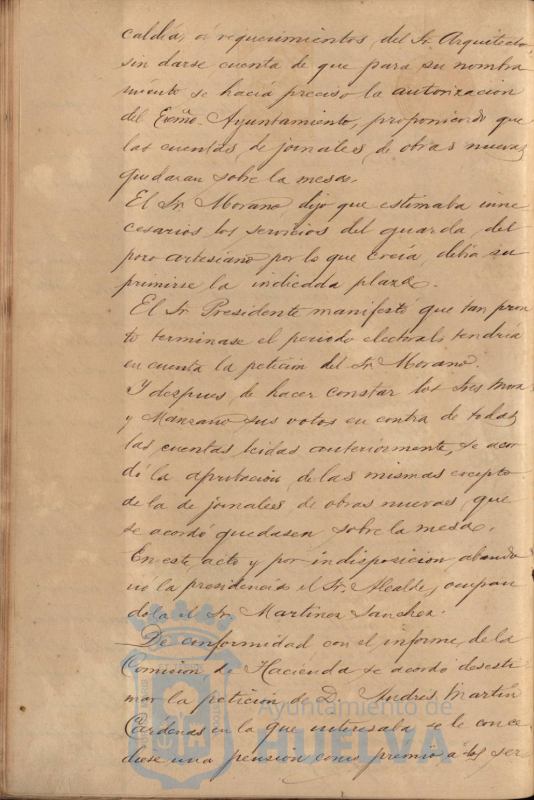 caldia, á requerimientos, del Sr. Arquitecto,
sin darse cuenta de que para su nombra
miento se hacia preciso la autorizacion
del Excmo. Ayuntamiento, proponiendo que
las cuentas, de jornales, de obras nuevas
quedaran sobre la mesa.
El Sr. Morano, dijo que estimaba inne
cesarios los servicios del guarda, del
pozo artesiano por lo que creia, debia su
primirse la indicada plaza.
El Sr. Presidente manifestó que tan pron
to terminase el periodo electoral, tendria
en cuenta la peticion del Sr. Morano.
Y despues, de hacer constar los Sres Mora
y Manzano sus votos en contra de todas
las cuentas, leidas anteriormente, se acor
dó la aprobacion, de las mismas excepto
de la de jornales de obras nuevas, que
se acordó quedasen sobre la mesa.
En este, acto y por indisposicion, abando
nó la presidencia el Sr. Alcalde, ocupan
dola el Sr. Martinez Sanchez.
De conformidad con el informe, de la
Comision, de Hacienda se acordó desesti
mar la peticion de D. Andres Martin
Cárdenas en la que interesaba se le conce
diese una pension como premio á los ser
Ayuntamiento de
HUELVA